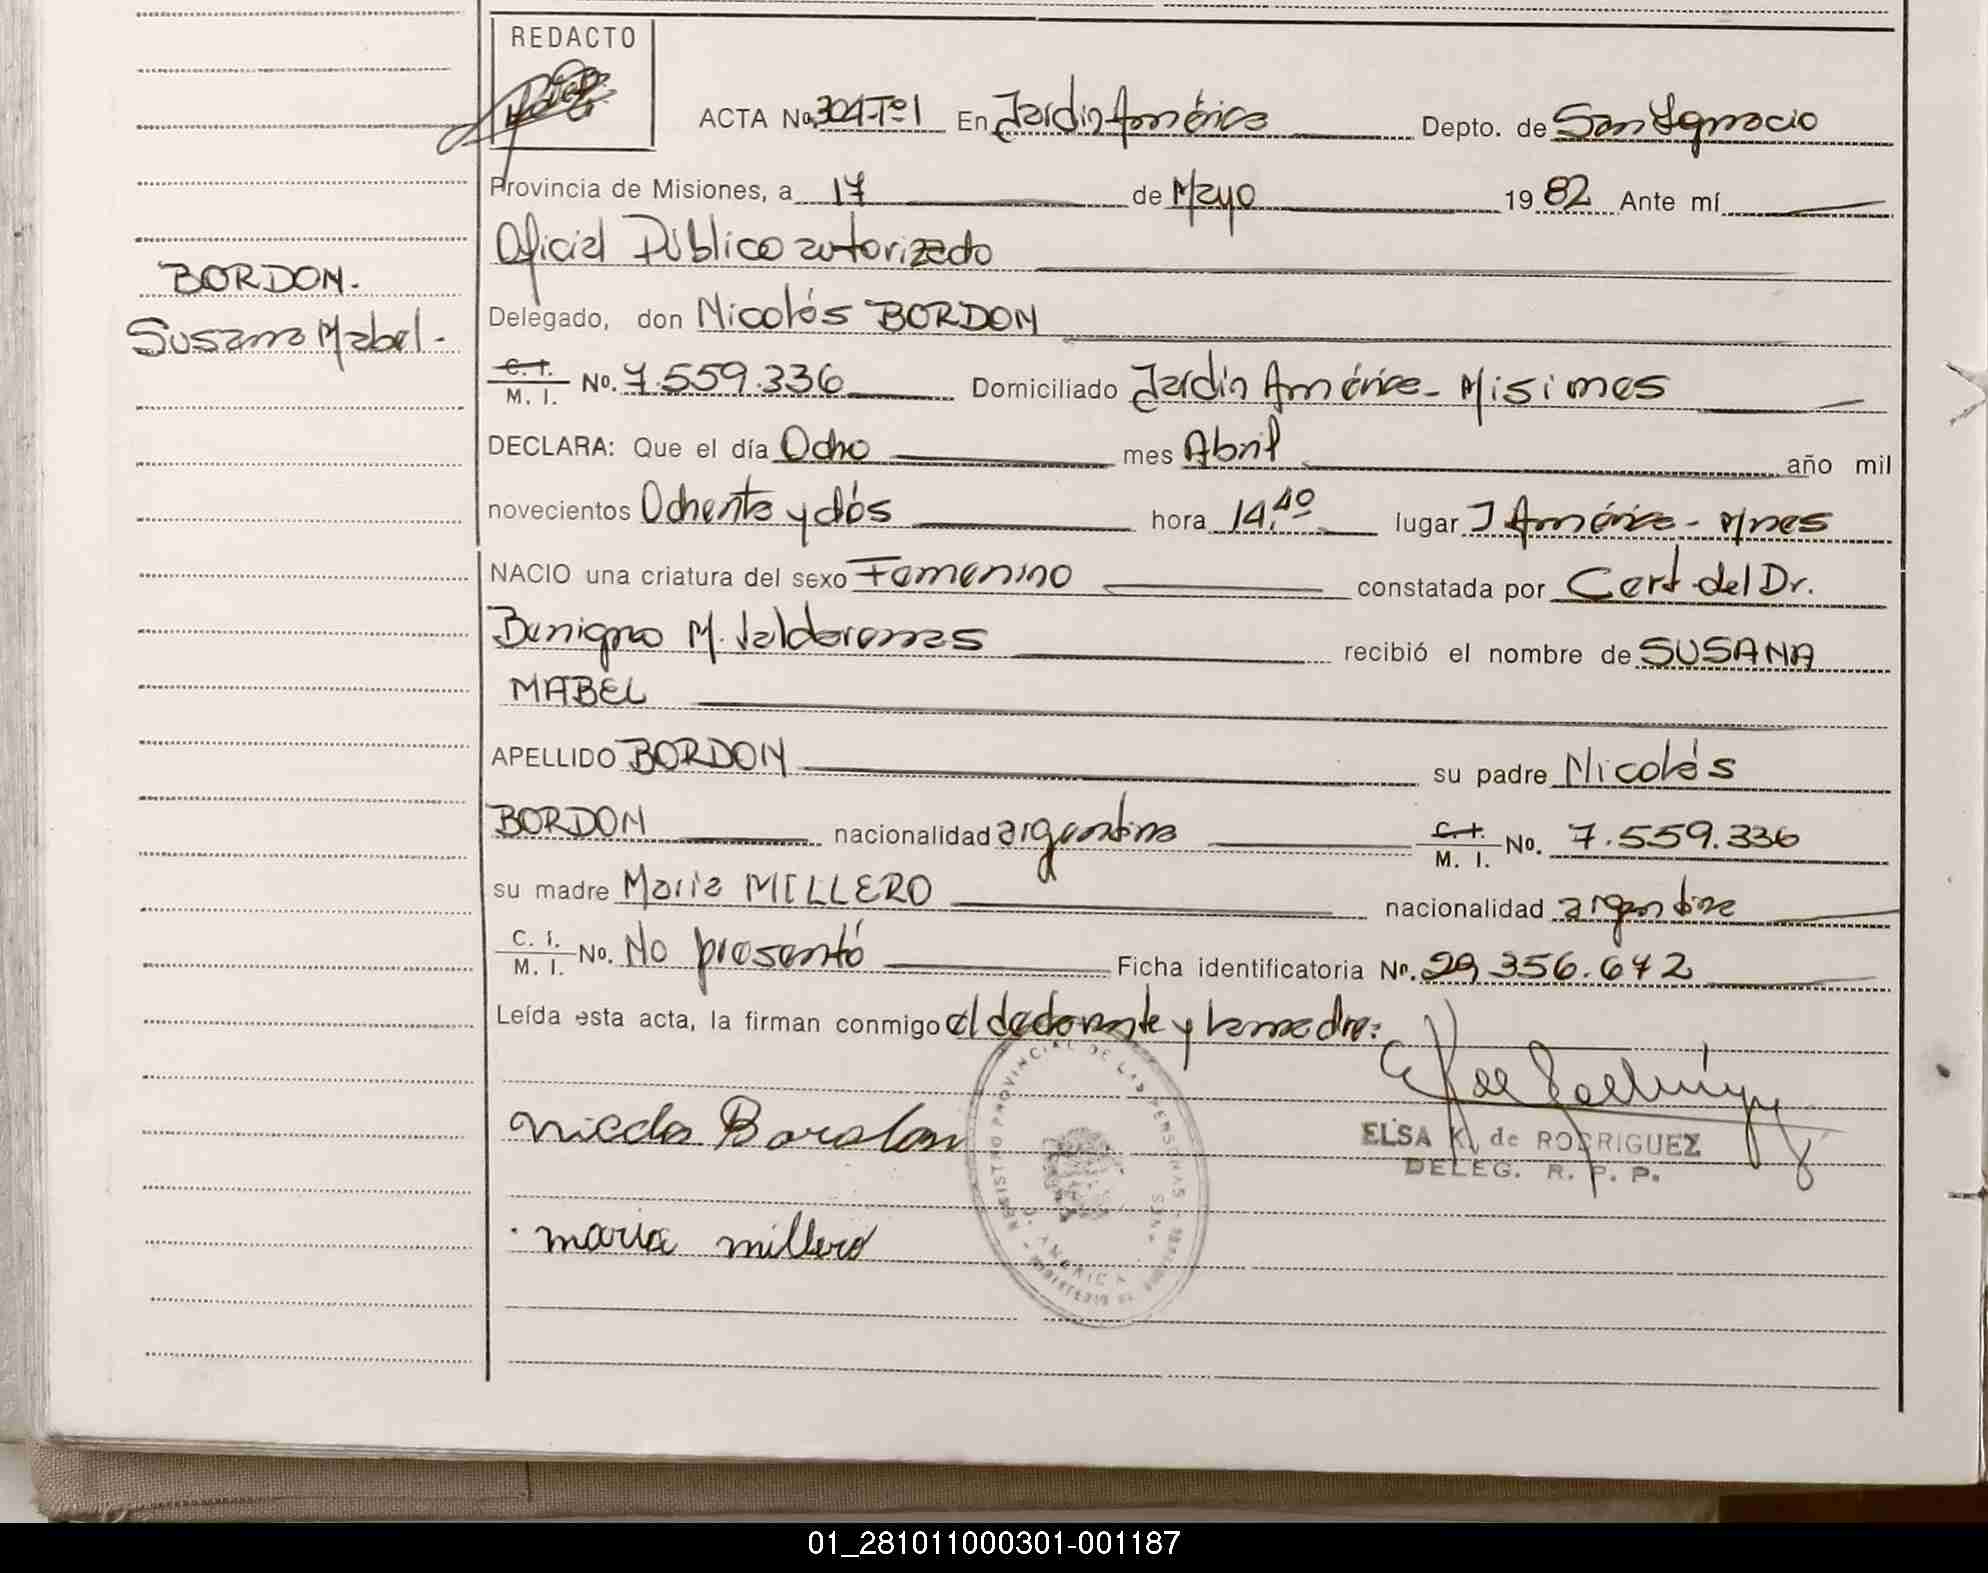 REDACTO
ACTA No. 304-Tº1 En Jardin América Depto. de San Ignacio
Provincia de Misiones, a 17 de Mayo 1982 Ante mí
Oficial Público autorizado
BORDON.
Susana Mabel.
Delegado, don Nicolás BORDON
C. I. / M. I. No. 7.559.336 Domiciliado Jardín América - Misiones
DECLARA: Que el día Ocho mes Abril año mil
novecientos Ochenta y dós hora 14,40 lugar J América - Mnes
NACIO una criatura del sexo Femenino constatada por Cert del Dr.
Benigno M. Valdarenas recibió el nombre de SUSANA
MABEL
APELLIDO BORDON su padre Nicolás
BORDON nacionalidad argentina C. I. / M. I. No. 7.559.336
su madre Maria MILLERO nacionalidad argentina
C. I. / M. I. No. No presentó Ficha identificatoria No. 29.356.642
Leída esta acta, la firman conmigo el declarante y la madre:
REGISTRO PROVINCIAL DE LAS PERSONAS
AMERICA
ELSA K. de RODRIGUEZ
DELEG. R. P. P.
Nicolas Bordon
maria millero
01_281011000301-001187